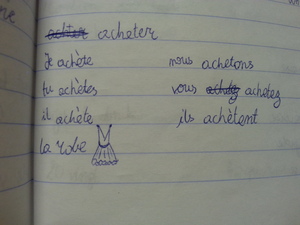 acheter
Je achète nous achetons
tu achètes vous achetez
il achète ils achètent
la robe